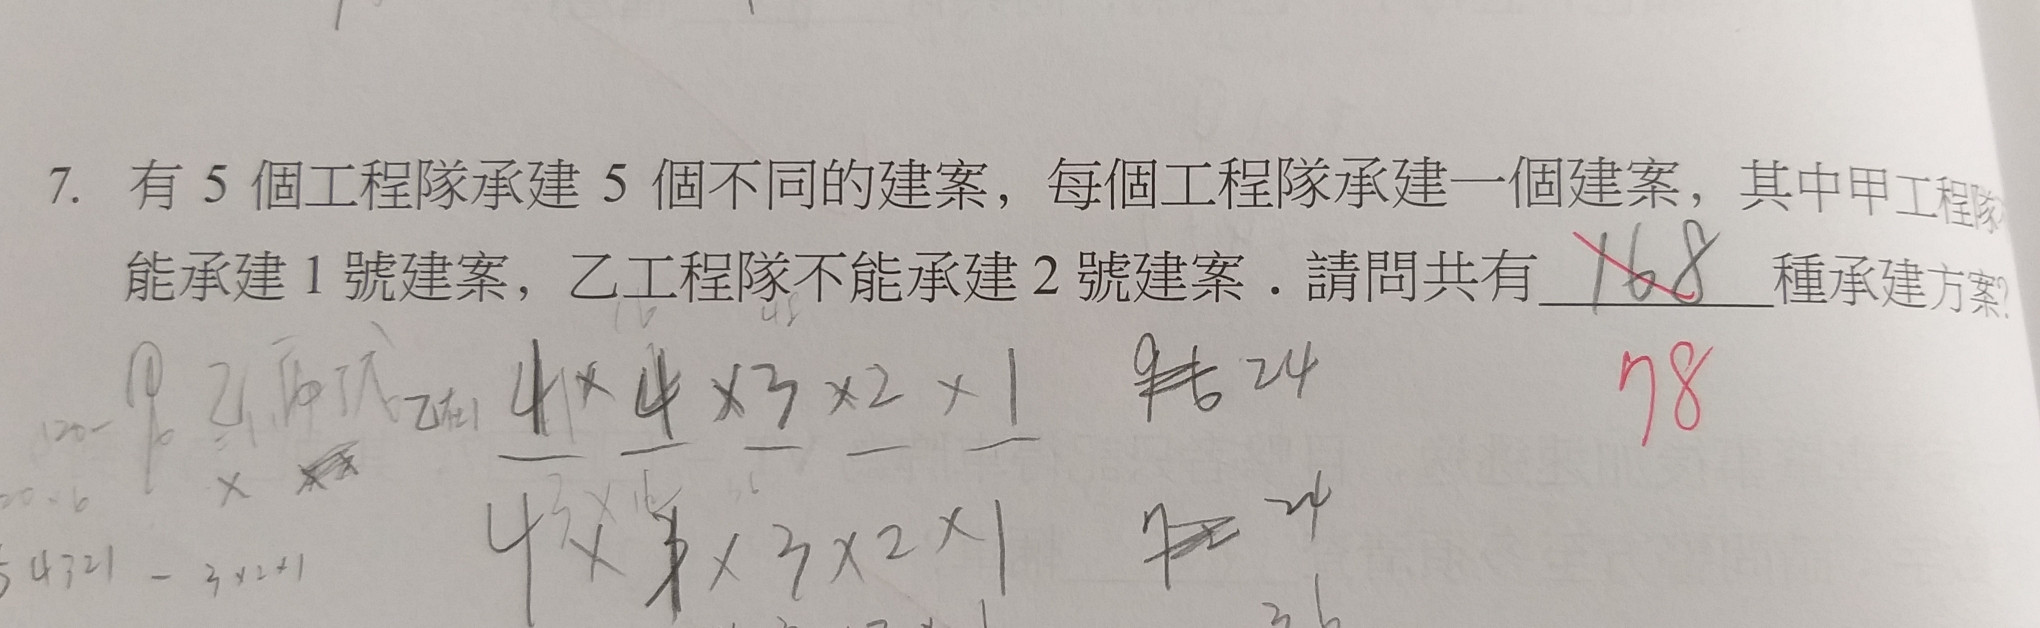 7. 有 5 個工程隊承建 5 個不同的建案，每個工程隊承建一個建案，其中甲工程隊
能承建 1 號建案，乙工程隊不能承建 2 號建案．請問共有 168 種承建方案?
78
乙在1 4×4×3×2×1 24
4× ×3×2×1 24
54321 - 3×2×1
36